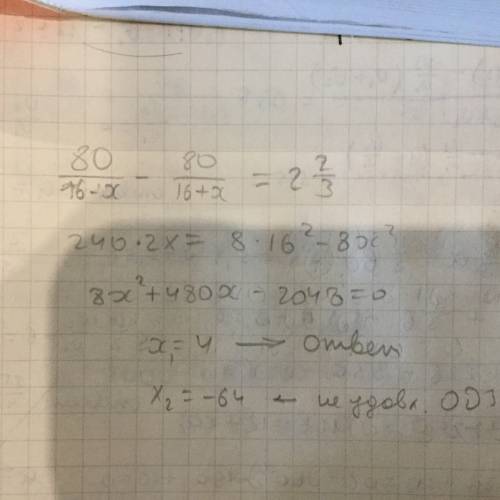 80/(16-x) - 80/(16+x) = 2 2/3
240·2x = 8·16² - 8x²
8x² + 480x - 2048 = 0
x₁ = 4 → ответ
x₂ = -64 ← не удовл. ОДЗ